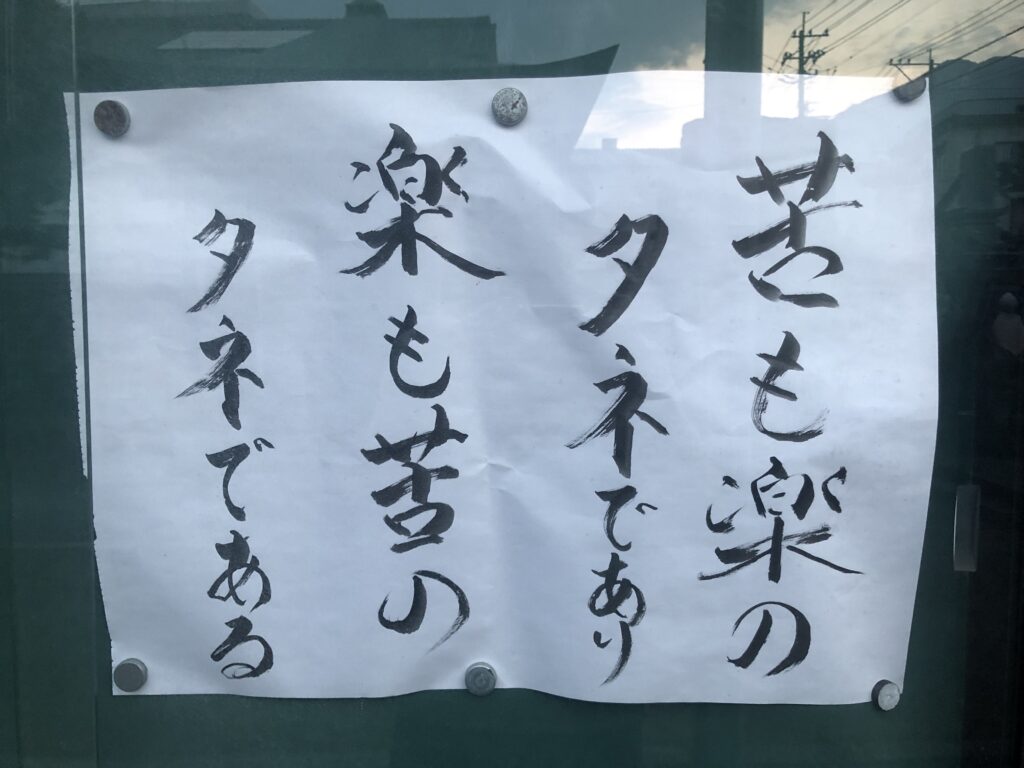 苦も楽の
タネであり
楽も苦の
タネである